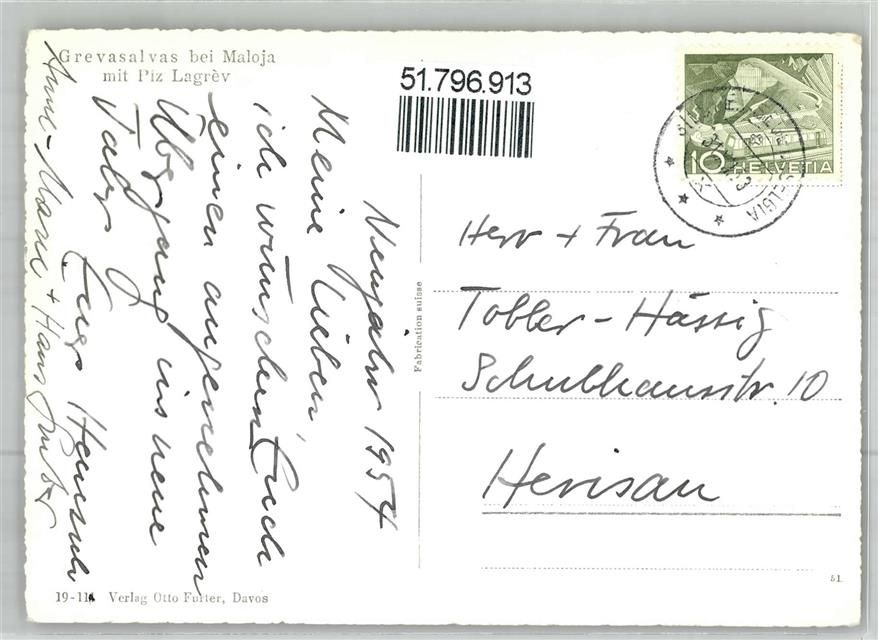 Grevasalvas bei Maloja
mit Piz Lagrèv
51.796.913
10 HELVETIA
Neujahr 1954
Meine Lieben,
ich wünschen Euch
einen angenehmen
Übergang ins neue
Jahr Eure
Anne-Marie + Hans
Herr + Frau
Tobler-Hässig
Schulhausstr. 10
Herisau
Fabrication suisse
51
19-11 Verlag Otto Furter, Davos